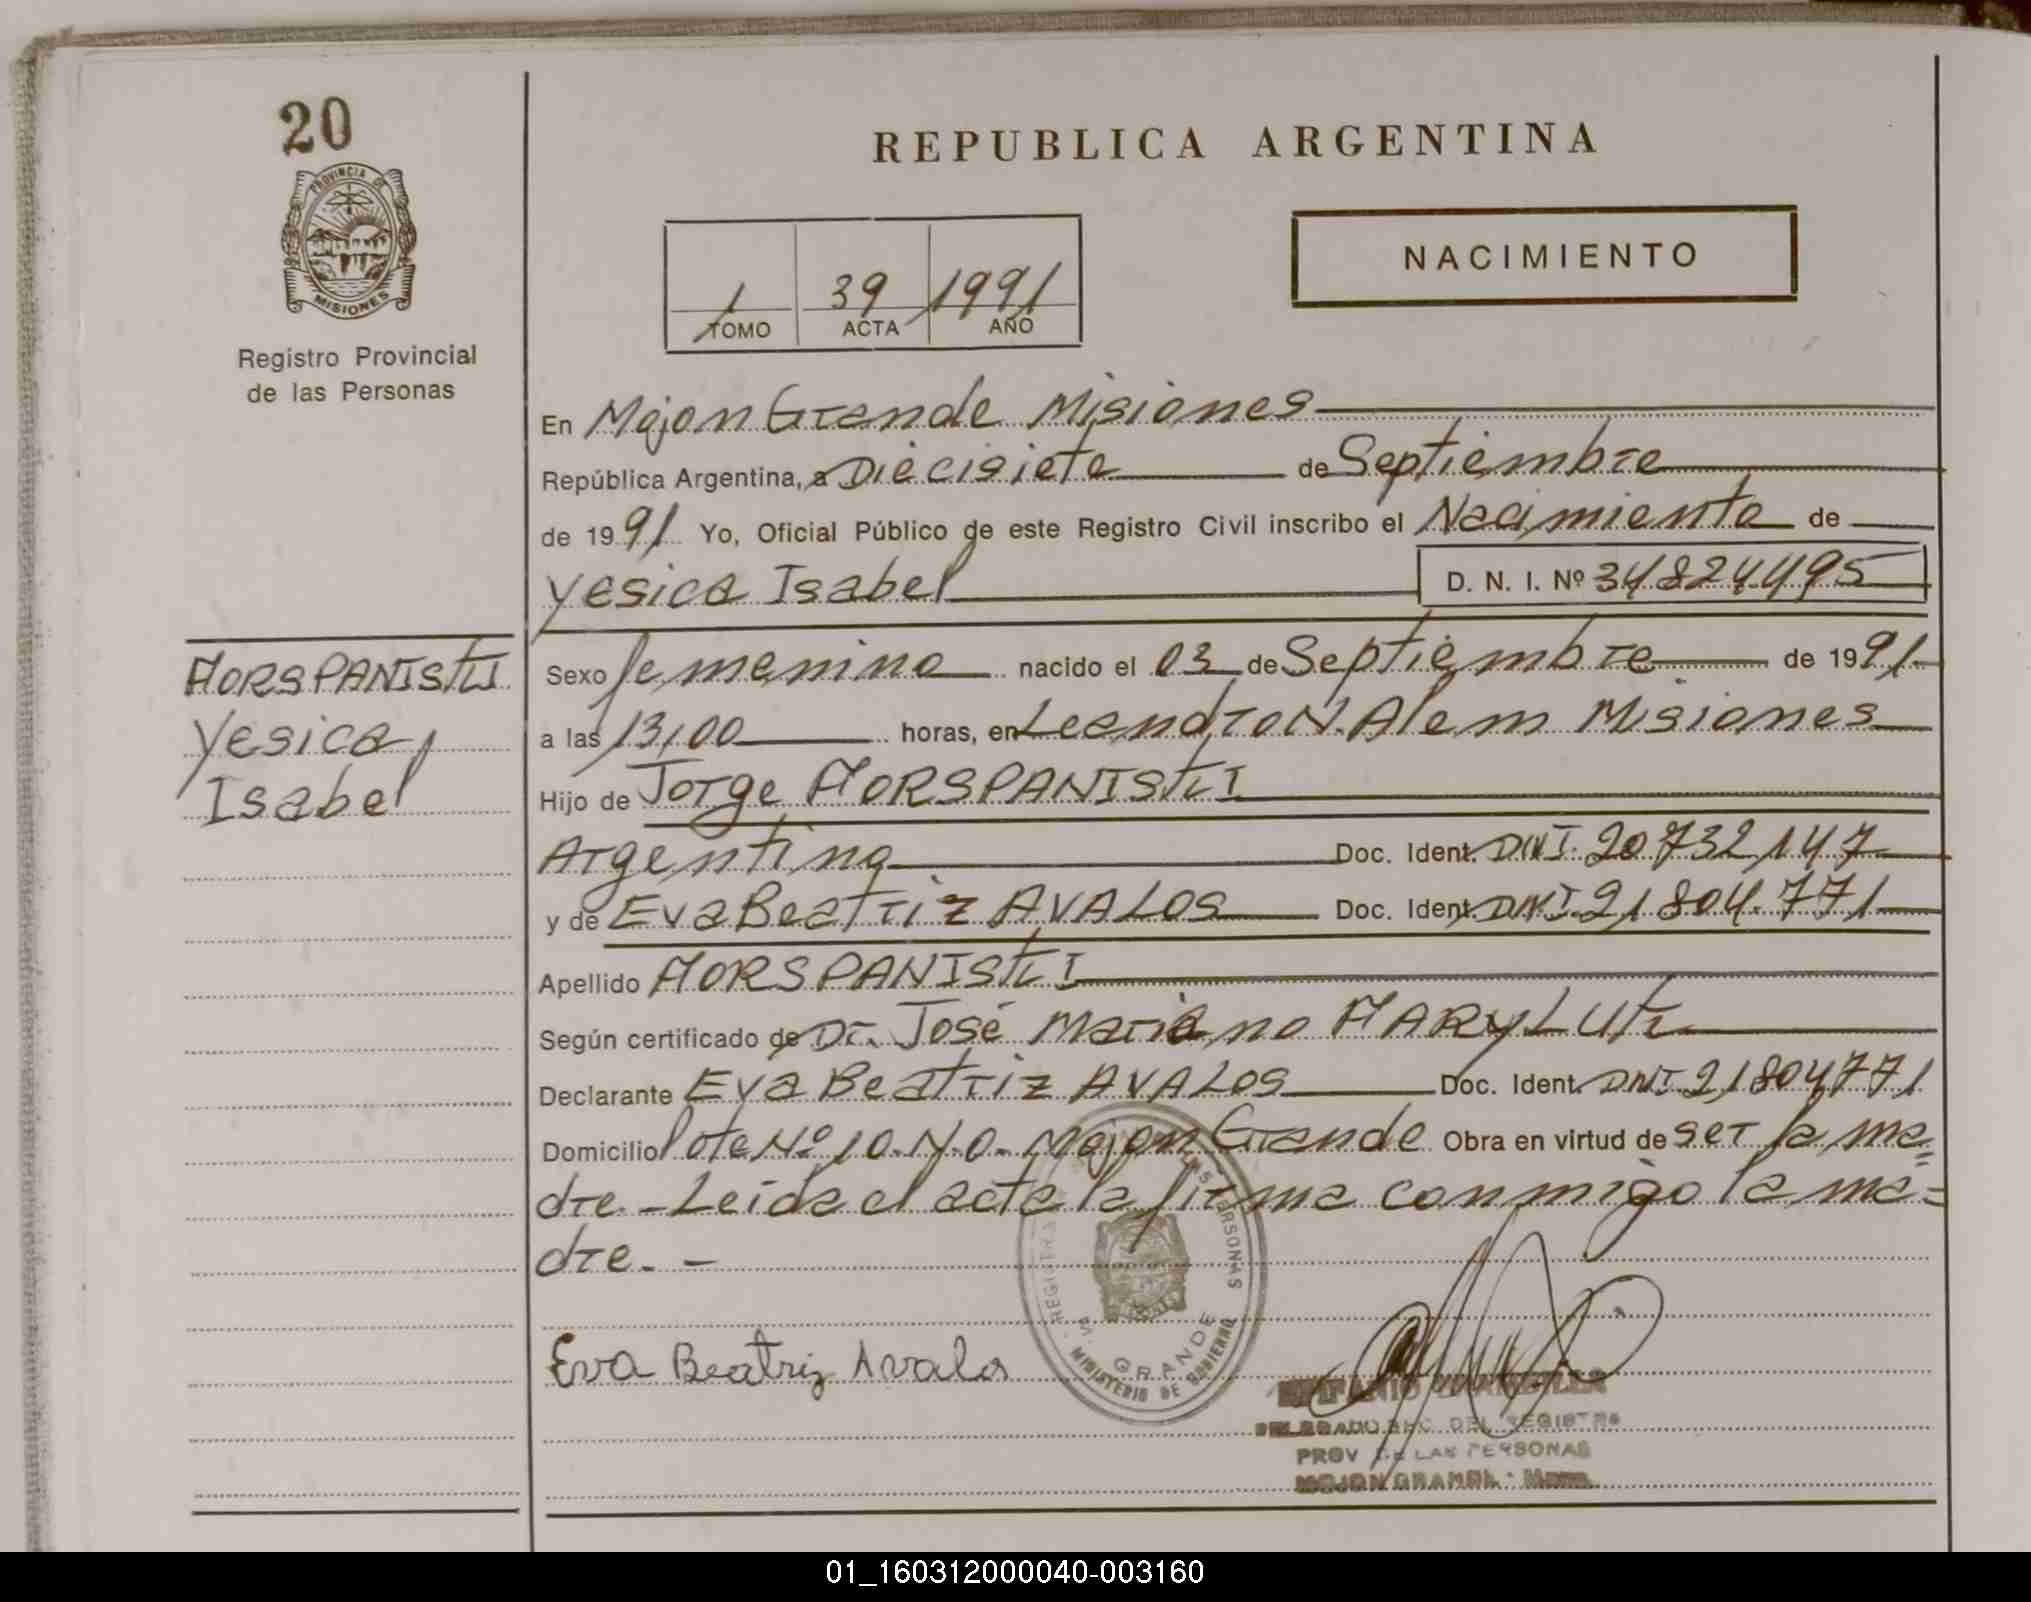 20
PROVINCIA DE
MISIONES
Registro Provincial
de las Personas
REPUBLICA ARGENTINA
NACIMIENTO
1 39 1991
TOMO ACTA AÑO
En Mojon Grande Misiones
República Argentina, a Diecisiete de Septiembre
de 1991 Yo, Oficial Público de este Registro Civil inscribo el Nacimiento de
Yesica Isabel D. N. I. Nº 34824495
HORSPANISKI
Yesica
Isabel
Sexo femenino nacido el 03 de Septiembre de 1991
a las 13,00 horas, en Leandro N. Alem Misiones
Hijo de Jorge HORSPANISKI
Argentino Doc. Ident. DNI. 20732147
y de Eva Beatriz AVALOS Doc. Ident. DNI. 21.804.771
Apellido HORSPANISKI
Según certificado de Dr. José Mariano HARYLUK
Declarante Eva Beatriz AVALOS Doc. Ident. DNI 21804771
Domicilio lote Nº 10. Y.O. Mojon Grande Obra en virtud de ser la ma=
dre. - Leída el acta la firma conmigo la ma=
dre. -
Eva Beatriz Avalos
GRANDE
MINISTERIO DE GOBIERNO
DELEGADO DEL REGISTRO
PROV DE LAS PERSONAS
MOJON GRANDE
01_160312000040-003160